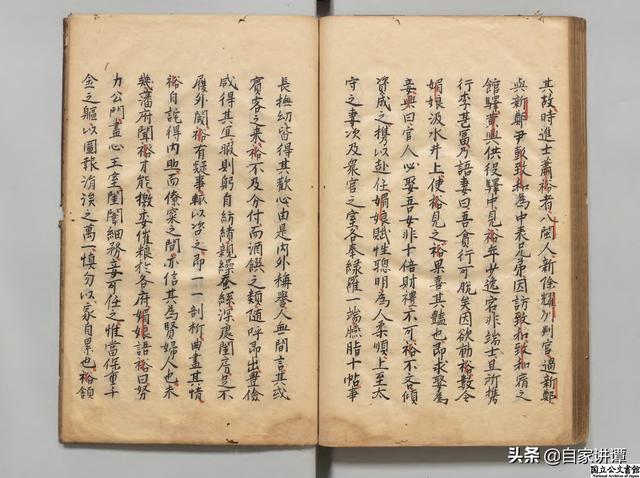 其故時進士蕭裕者八閩人新除耀州判官過新鄭
與新鄭尹彭致和為中表兄弟因訪致和致和宿之
館驛黃興供役驛中見裕年少逸宕非端士且所攜
行李甚富乃語妻曰吾貧行可脫矣因欲動裕數令
媚娘汲水井上使裕見之裕果喜其豔也即求娶為
妾興曰官人必娶吾女非十倍財禮不可裕不吝傾
資成之攜以赴任媚娘賦性聰明為人柔順上至太
守之妻次及衆官之室各奉緑羅一端臙脂十帖事
長撫幼皆得其歡心由是內外稱譽人無間言其或
賓客之來裕不及分付而酒饌之類隨呼即出豐儉
咸得其宜暇則躬自紡績親繰蚕絲深處閨房足不
履外閾裕有疑事輙以咨之即一一剖析曲盡其情
裕自詫得內助而僚寀之間亦信其為賢婦人也未
幾藩府聞裕才能檄委催糧於各府媚娘語裕曰努
力公門盡心王室閨閫細務妾可任之惟當保重千
金之軀以圖報涓涘之萬一慎勿以家自累也裕領
头条 @自家讲谭
国立公文書館
National Archives of Japan